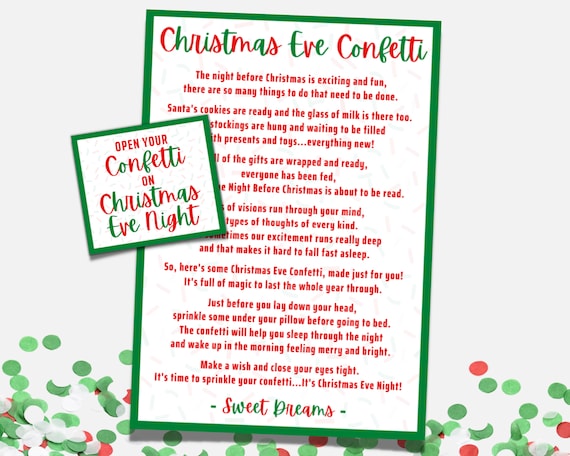 Christmas Eve Confetti
The night before Christmas is exciting and fun,
there are so many things to do that need to be done.
Santa's cookies are ready and the glass of milk is there too.
stockings are hung and waiting to be filled
with presents and toys...everything new!
of the gifts are wrapped and ready,
everyone has been fed,
The Night Before Christmas is about to be read.
of visions run through your mind,
types of thoughts of every kind.
Sometimes our excitement runs really deep
and that makes it hard to fall fast asleep.
So, here's some Christmas Eve Confetti, made just for you!
It's full of magic to last the whole year through.
Just before you lay down your head,
sprinkle some under your pillow before going to bed.
The confetti will help you sleep through the night
and wake up in the morning feeling merry and bright.
Make a wish and close your eyes tight.
It's time to sprinkle your confetti...It's Christmas Eve Night!
- Sweet Dreams -
OPEN YOUR
Confetti
ON
Christmas
Eve Night